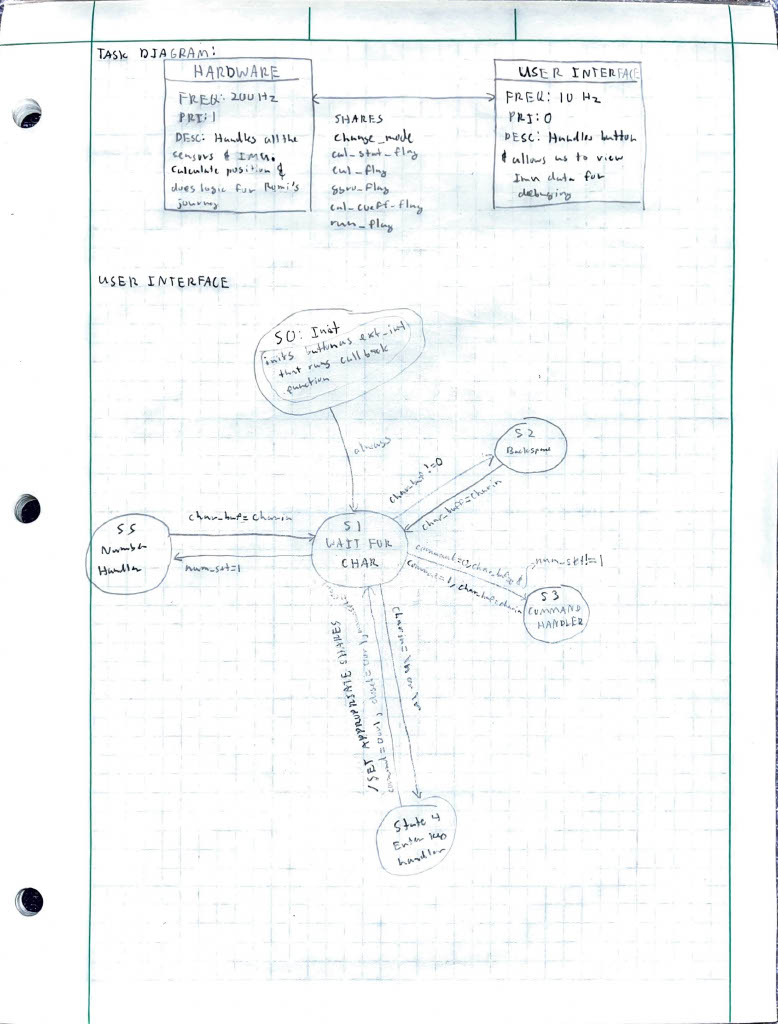 TASK DIAGRAM:
HARDWARE
FREQ: 200 Hz
PRI: 1
DESC: Handles all the
sensors & IMU.
Calculate position &
does logic for Romi's
journey
SHARES
change_mode
cal_stat_flag
cal_flag
gyro_flag
cal_coeff_flag
run_flag
USER INTERFACE
FREQ: 10 Hz
PRI: 0
DESC: Handles button
& allows us to view
Imu data for
debugging
USER INTERFACE
S0: Init
inits button as ext_int
that runs callback
function
always
S2
Backspace
char_buf != 0
char_buf = charin
S5
Number
Handler
char_buf = charin
num_set=1
S1
WAIT FOR
CHAR
num_set!=1
command=1, char_buf=charin
S3
COMMAND
HANDLER
/SET APPROPRIATE SHARES
State 4
Enter key
handler